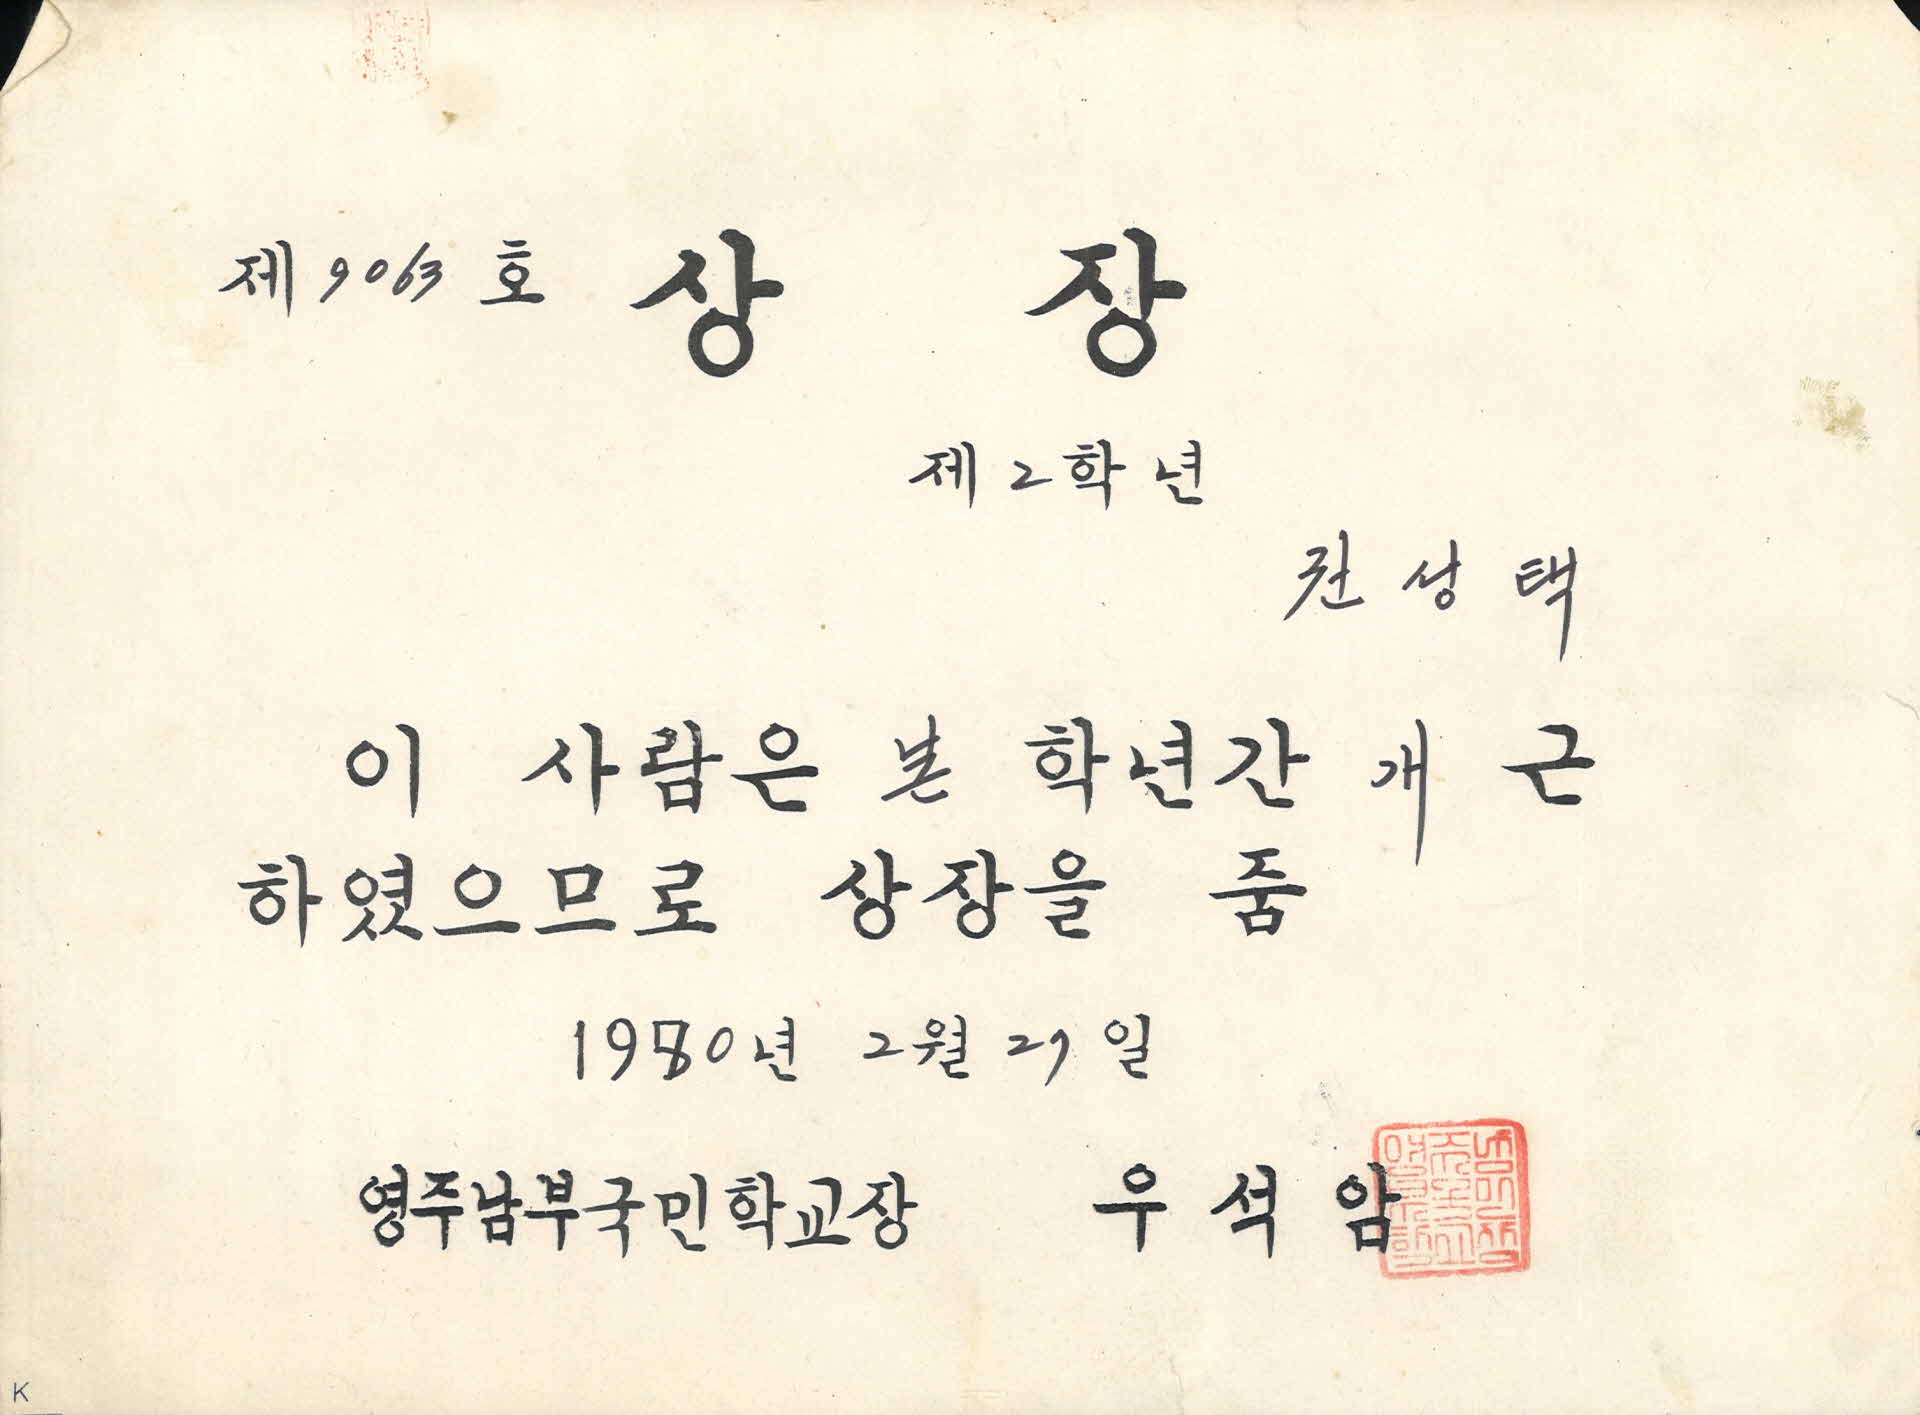 제 9063 호 상 장
제 2 학 년
권 성 택
이 사람은 본 학년간 개 근
하였으므로 상장을 줌
1980년 2월 29일
영주남부국민학교장 우 석 암
K